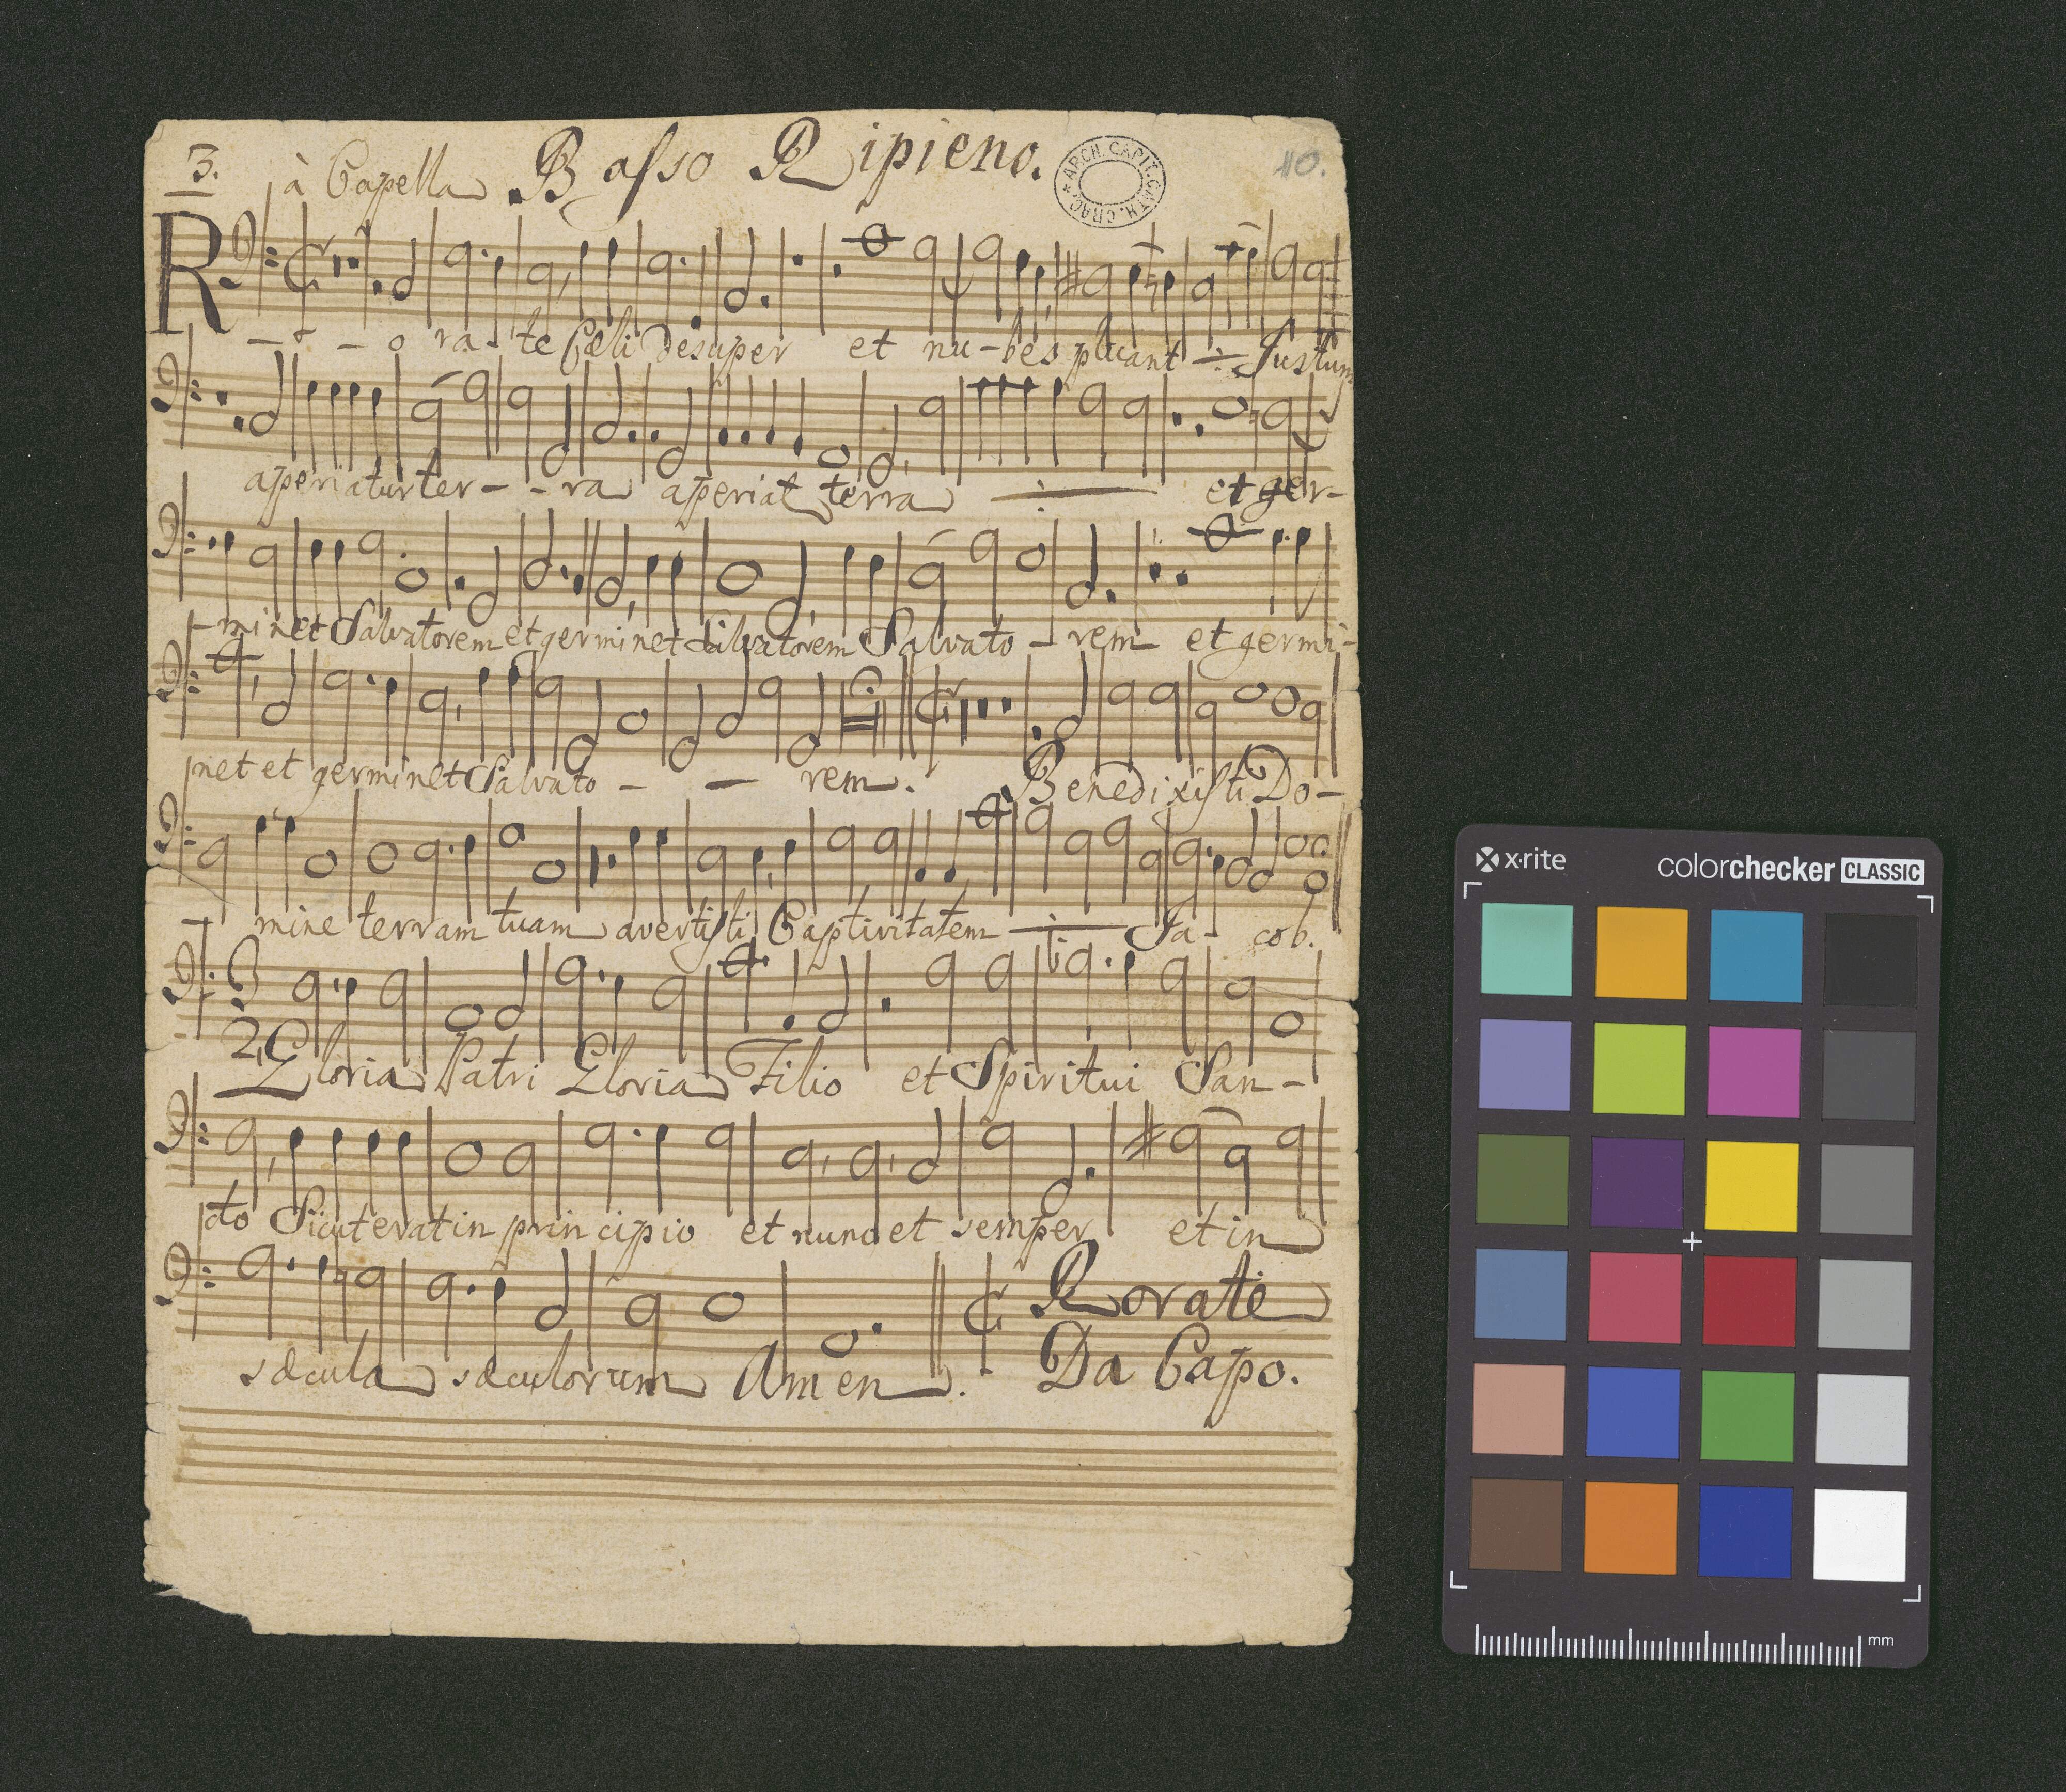 3. à Capella Basso Ripieno. 10.
ARCH. CAPIT. CATH. CRAC.
R - o ra - te Cæli desuper et nu - bes pluant ÷ Justum
aperiatur ter - - ra aperiat terra ÷ et ger -
- minet Salvatorem et germinet Salvatorem Salvato - rem et germi -
net et germinet Salvato - - rem. Benedixisti Do -
- mine terram tuam avertisti Captivitatem ÷ Ja - cob.
2. Gloria Patri Gloria Filio et Spiritui San -
cto Sicut erat in principio et nunc et semper et in
sæcula sæculorum Amen. Rorate
Da Capo.
x·rite colorchecker CLASSIC
mm